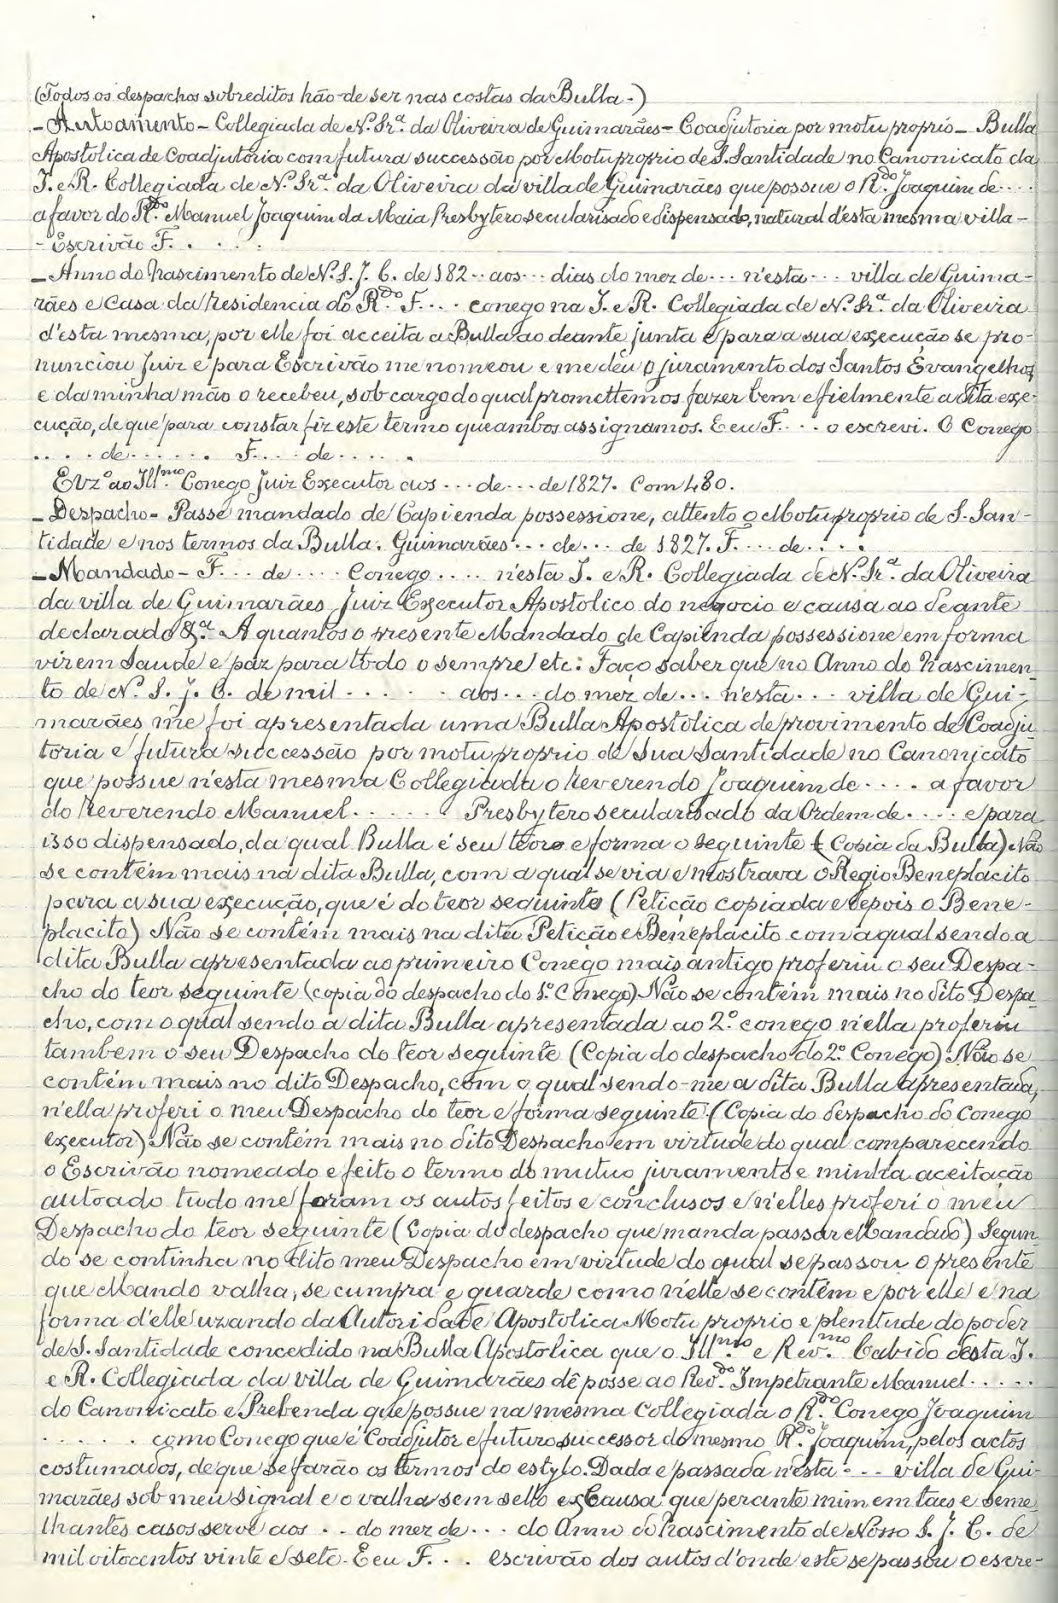 (Todos os despachos sobreditos hão-de ser nas costas da Bulla.)
- Autoamento - Collegiada de N.ª Sr.ª da Oliveira de Guimarães - Coadjutoria por motu proprio - Bulla
Apostolica de Coadjutoria com futura successão por Motu proprio de S. Santidade no Canonicato da
I. e R. Collegiada de N.ª Sr.ª da Oliveira da villa de Guimarães que possue o R.do Joaquim de ....
a favor do R.do Manuel Joaquim da Maia Presbytero secularisado e dispensado, natural d'esta mesma villa -
- Escrivão F. . . . .
- Anno do Nascimento de N. S. J. C. de 182.. aos... dias do mez de... n'esta... villa de Guima-
rães e Casa da Residencia do R.do F... conego na I. e R. Collegiada de N.ª Sr.ª da Oliveira
d'esta mesma, por elle foi acceita a Bulla ao deante junta e para a sua execução se pro-
nunciou Juiz e para Escrivão me nomeou e me deu o juramento dos Santos Evangelhos
e da minha mão o recebeu, sob cargo do qual promettemos fazer bem e fielmente a dita exe-
cução, de que para constar fiz este termo que ambos assignamos. E eu F.... o escrevi. O Conego
.... de...... F.... de.....
Ill.mo Conego Juiz Executor aos... de... de 1827. Com 480.
- Despacho - Passe mandado de Capienda possessione, attento o Motu proprio de S. San-
tidade e nos termos da Bulla. Guimarães... de... de 1827. F.... de....
- Mandado - F... de.... Conego.... n'esta I. e R. Collegiada de N.ª Sr.ª da Oliveira
da villa de Guimarães Juiz Executor Apostolico do negocio e causa ao deante
declarado &.ª A quantos o presente Mandado de Capienda possessione em forma
virem Saude e paz para todo o sempre etc: Faço saber que no Anno do Nascimen-
to de N. S. J. C. de mil ..... aos... do mez de... n'esta... villa de Gui-
marães me foi apresentada uma Bulla Apostolica de provimento de Coadju-
toria e futura successão por motu proprio de Sua Santidade no Canonicato
que possue n'esta mesma Collegiada o Reverendo Joaquim de.... a favor
do Reverendo Manuel...... Presbytero secularisado da Ordem de.... e para
isso dispensado, da qual Bulla é seu teor e forma o seguinte (Copia da Bulla) Não
se contém mais na dita Bulla, com a qual se via e mostrava o Regio Beneplacito
para a sua execução, que é do teor seguinte (Petição copiada e depois o Bene-
placito) Não se contém mais na dita Petição e Beneplacito com a qual sendo a
dita Bulla apresentada ao primeiro Conego mais antigo proferiu o seu Despa-
cho do teor seguinte (copia do despacho do 1.º Conego) Não se contém mais no dito Despa-
cho, com o qual sendo a dita Bulla apresentada ao 2.º conego n'ella proferiu
tambem o seu Despacho do teor seguinte (Copia do despacho do 2.º Conego) Não se
contém mais no dito Despacho, com o qual sendo-me a dita Bulla apresentada,
n'ella proferi o meu Despacho do teor e forma seguinte (Copia do despacho do Conego
executor) Não se contém mais no dito Despacho em virtude do qual comparecendo
o Escrivão nomeado e feito o termo do mutuo juramento e minha aceitação
autoado tudo me foram os autos feitos e conclusos e n'elles proferi o meu
Despacho do teor seguinte (Copia do despacho que manda passar Mandado) Segun-
do se continha no dito meu Despacho em virtude do qual se passou o presente
que Mando valha, se cumpra e guarde como n'elle se contém e por elle e na
forma d'elle uzando da Autoridade Apostolica Motu proprio e plenitude do poder
de S. Santidade concedido na Bulla Apostolica que o Ill.mo e Rev.mo Cabido desta I.
e R. Collegiada da villa de Guimarães dê posse ao Rev.do Impetrante Manuel.....
do Canonicato e Prebenda que possue na mesma Collegiada o R.do Conego Joaquim
...... como Conego que é Coadjutor e futuro successor do mesmo R.do Joaquim, pelos actos
costumados, de que se farão os termos do estylo. Dada e passada n'esta... villa de Gui-
marães sob meu signal e o valha sem sello ex Causa que perante mim em táes e seme-
lhantes casos serve aos... do mez de... do Anno do Nascimento de Nosso S. J. C. de
mil oitocentos vinte e sete. E eu F... escrivão dos autos d'onde este se passou o escre-